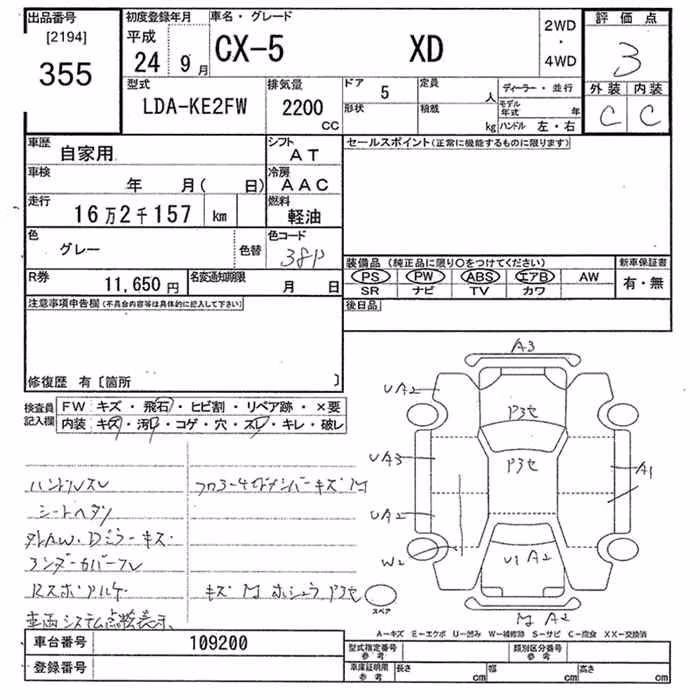 出品番号
[2194]
355
初度登録年月
平成
24 9月
車名・グレード
CX-5 XD
2WD
・
4WD
評価点
3
外装 内装
C C
型式
LDA-KE2FW
排気量
2200
CC
ドア 5
形状
定員 人
積載 kg
ディーラー・並行
モデル年式 年
ハンドル 左・右
車歴 自家用
シフト
AT
車検 年 月( 日)
冷房
AAC
走行 16万2千157 km
燃料
軽油
色 グレー 色替
色コード
38P
R券 11,650円
名変通知期限 月 日
セールスポイント(正常に機能するものに限ります)
装備品(純正品に限り○をつけてください)
新車保証書
PS PW ABS エアB AW
SR ナビ TV カワ
有・無
後日品
注意事項申告欄(不具合内容等は具体的に記入して下さい)
修復歴 有〔箇所 〕
検査員記入欄
FW キズ・飛石・ヒビ割・リペア跡・×要
内装 キズ・汚れ・コゲ・穴・スレ・キレ・破レ
ハンドルスレ
シートヘタリ
外AW・Dミラーキズ・
アンダーカバーワレ
車両システム点検表示、
A3
UA2
P3セ
P3セ
UA3
A1
UA2
W2
U1 A2
A2
スペア
A－キズ E－エクボ U－凹み W－補修跡 S－サビ C－腐食 XX－交換済
車台番号 109200
登録番号
型式指定番号
参考
類別区分番号
参考
車庫証明用
参考
長さ cm
幅 cm
高さ cm